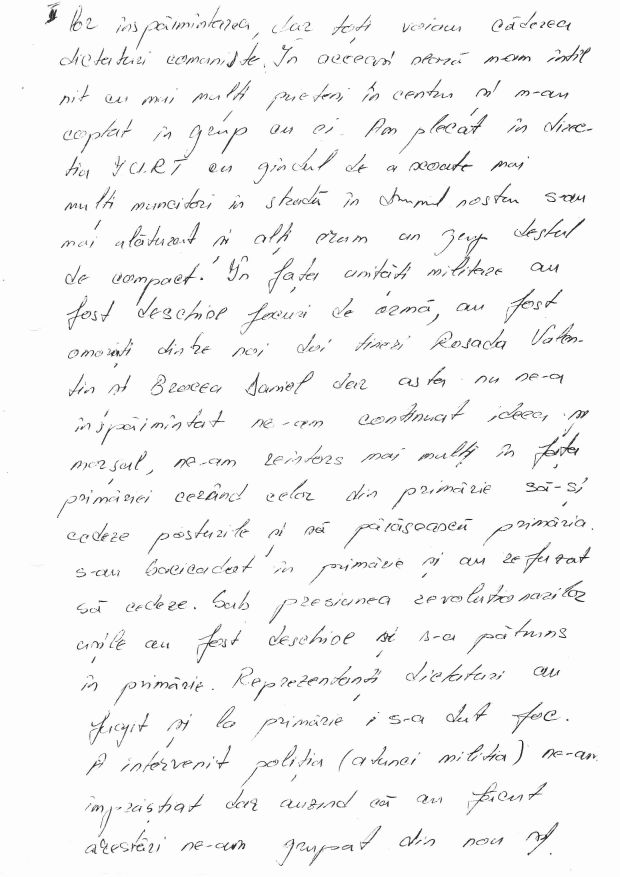 II
Por înspăimîntarea, dar toți voiam căderea
dictaturi comuniste. În acceași seară m-am întîl
nit cu mai mulți prieteni în centru și m-au
coptat în grup cu ei. Am plecat în direc-
tia I.U.R.T cu gindul de a scoate mai
mulți muncitori în stradă în drumul nostru s-au
mai alăturat și alți eram un grup destul
de compact. În fața unităti militare au
fost deschise focuri de armă, au fost
omorâți dintre noi doi tineri Rosada Valen-
tin și Brocea Daniel dar asta nu ne-a
înspăimîntat ne-am continuat ideea și
marșul, ne-am reintors mai mulți în fața
primăriei cerând celor din primărie să-și
cedeze posturile și să părăsească primăria.
s-au baricadat în primărie și au refuzat
să cedeze. Sub presiunea revolutionarilor
ușile au fost deschise și s-a pătruns
în primărie. Reprezentanți dictaturi au
fugit și la primărie i s-a dat foc.
A intervenit poliția (atunci militia) ne-am
împrăștiat dar auzind că au făcut
arestări ne-am grupat din nou și